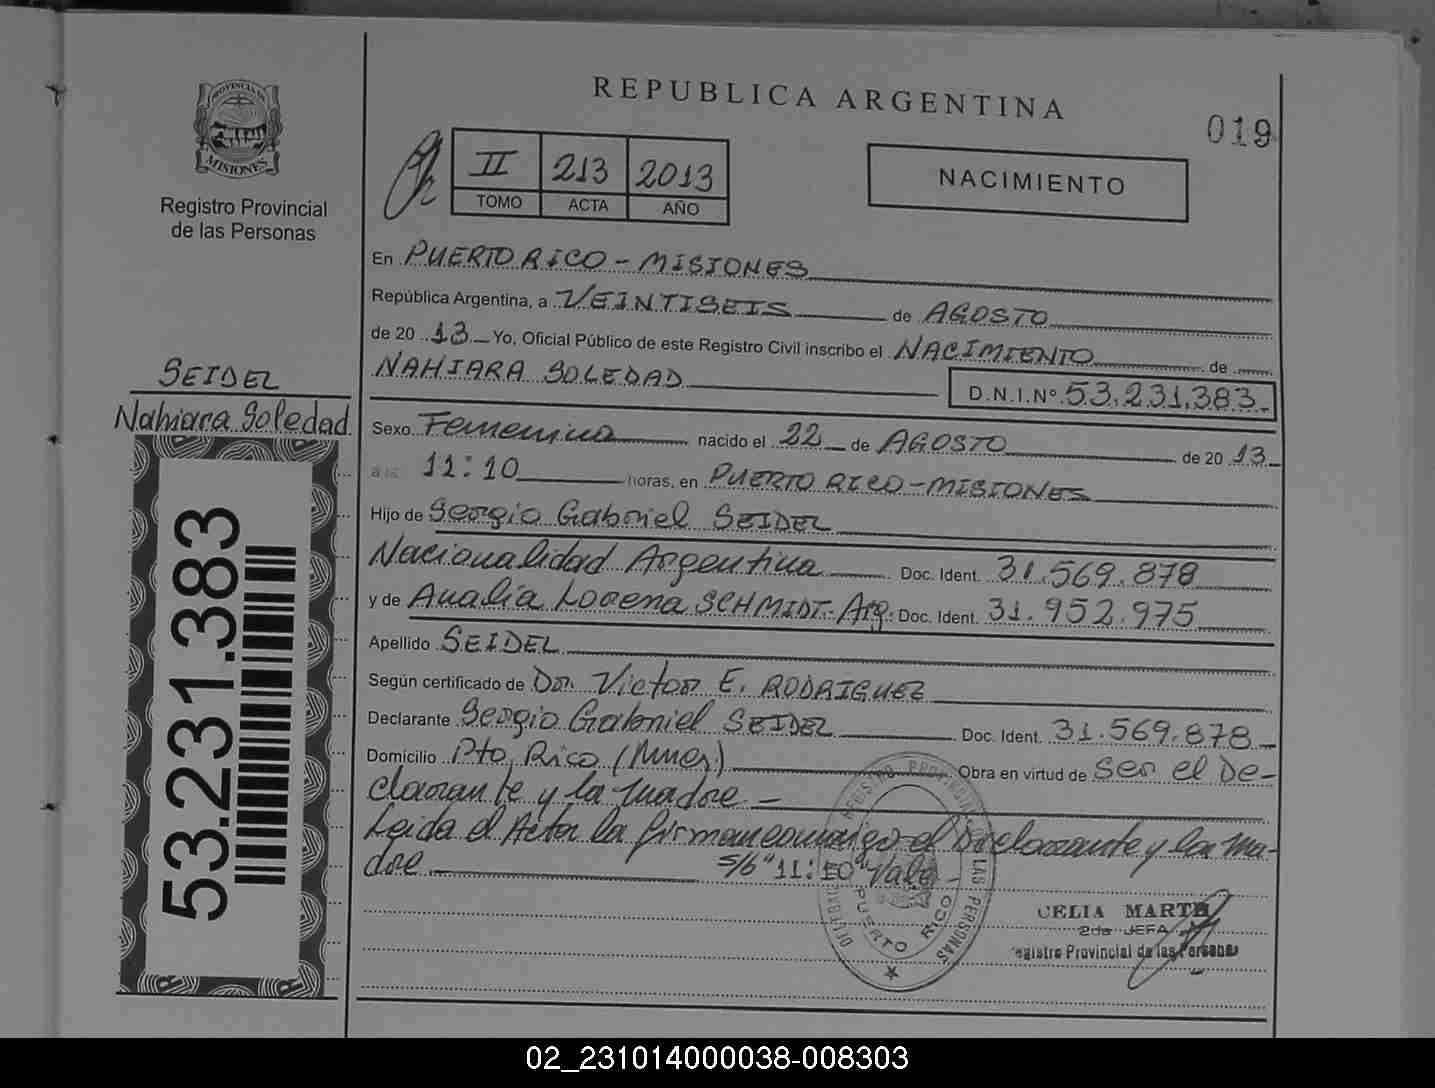 REPUBLICA ARGENTINA
019
PROVINCIA DE
MISIONES
Registro Provincial
de las Personas
II 213 2013
TOMO ACTA AÑO
NACIMIENTO
En PUERTO RICO - MISIONES
República Argentina, a VEINTISEIS de AGOSTO
de 20 13 Yo, Oficial Público de este Registro Civil inscribo el NACIMIENTO de
NAHIARA SOLEDAD D.N.I.Nº 53.231.383.
SEIDEL
Nahiara Soledad
53.231.383
Sexo Femenino nacido el 22 de AGOSTO de 20 13
a las 11:10 horas, en PUERTO RICO - MISIONES
Hijo de Sergio Gabriel SEIDEL
Nacionalidad Argentina Doc. Ident. 31.569.878
y de Analía Lorena SCHMIDT.- Arg. Doc. Ident. 31.952.975
Apellido SEIDEL
Según certificado de Dr. Victor E. RODRIGUEZ
Declarante Sergio Gabriel SEIDEL Doc. Ident. 31.569.878
Domicilio Pto. Rico (Mnes) Obra en virtud de Ser el De-
clarante y la madre -
Leida el Acta la firman conmigo el Declarante y la Ma-
dre S/b "11:10" Vale -
REGISTRO PROVINCIAL DE LAS PERSONAS
PUERTO RICO
CELIA MARTA
2da JEFA
Registro Provincial de las Personas
02_231014000038-008303